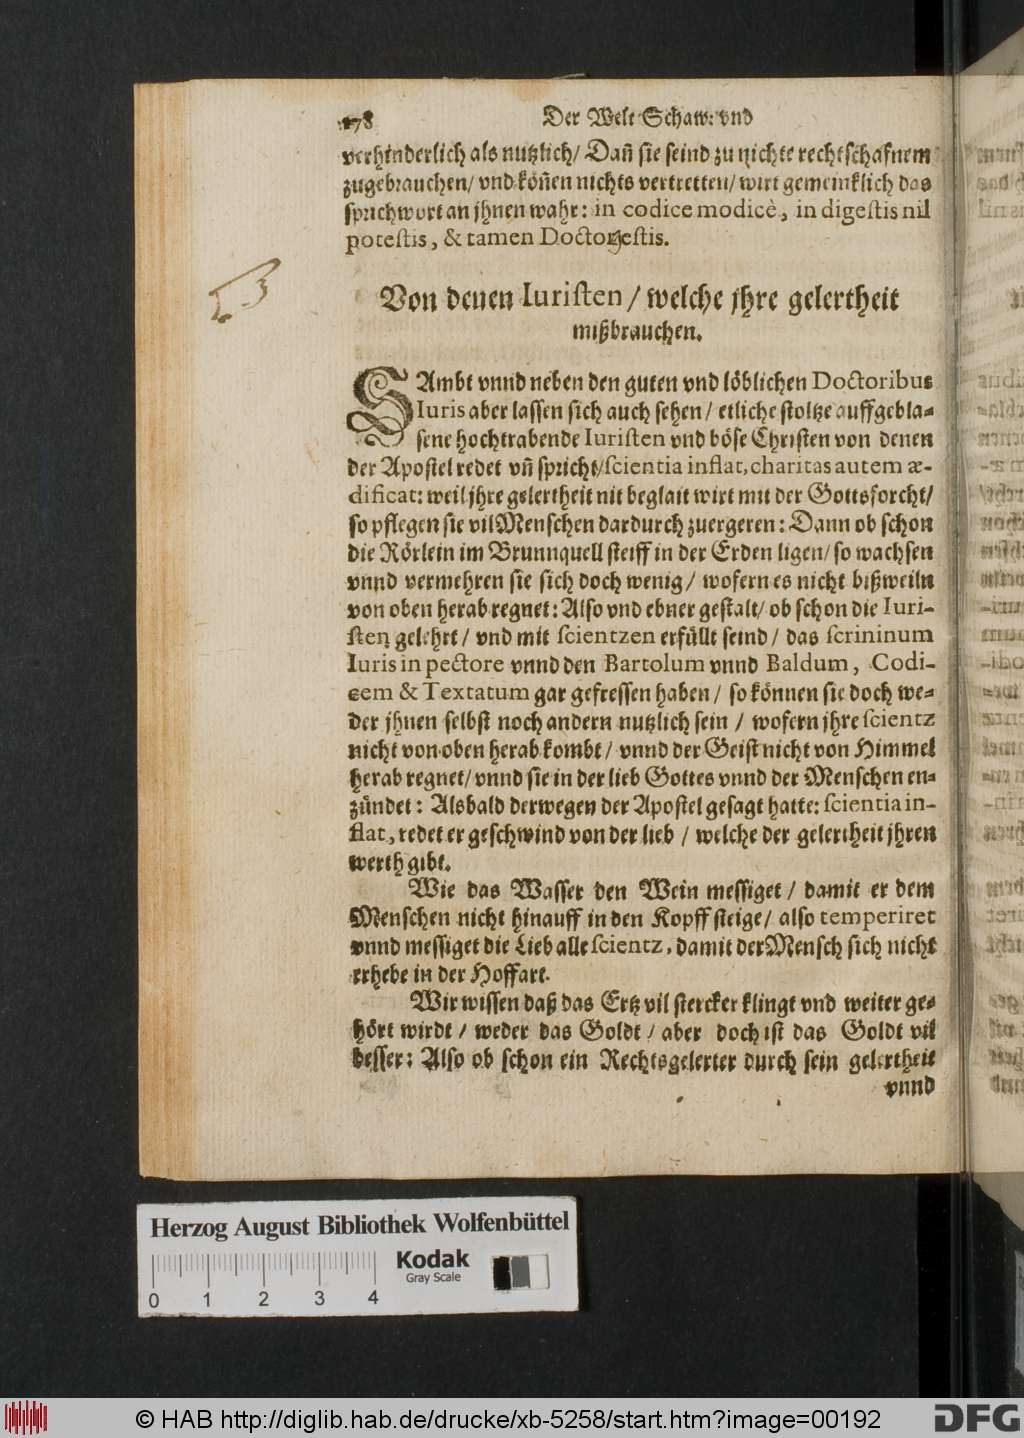 178 Der Welt Schaw: vnd
verhinderlich als nutzlich/ Dañ sie seind zu nichte rechtschafnem
zugebrauchen/ vnd köñen nichts vertretten/ wirt gemeinklich das
sprichwort an jhnen wahr: in codice modicè, in digestis nil
potestis, & tamen Doctor estis.
Von denen Iuristen / welche jhre gelertheit
mißbrauchen.
SAmbt vnnd neben den guten vnd löblichen Doctoribus
Iuris aber lassen sich auch sehen / etliche stoltze auffgebla-
sene hochtrabende Iuristen vnd böse Christen von denen
der Apostel redet vñ spricht/ scientia inflat, charitas autem æ-
dificat: weil jhre gelertheit nit beglait wirt mit der Gottsforcht/
so pflegen sie vil Menschen dardurch zuergeren: Dann ob schon
die Rörlein im Brunnquell steiff in der Erden ligen/ so wachsen
vnnd vermehren sie sich doch wenig / wofern es nicht bißweiln
von oben herab regnet: Also vnd ebner gestalt/ ob schon die Iuri-
sten gelehrt / vnd mit scientzen erfüllt seind / das scrininum
Iuris in pectore vnnd den Bartolum vnnd Baldum, Codi-
cem & Textatum gar gefressen haben / so können sie doch we-
der jhnen selbst noch andern nutzlich sein / wofern jhre scientz
nicht von oben herab kombt / vnnd der Geist nicht von Himmel
herab regnet/ vnnd sie in der lieb Gottes vnnd der Menschen en-
zündet: Alsbald derwegen der Apostel gesagt hatte: scientia in-
flat, redet er geschwind von der lieb / welche der gelertheit jhren
werth gibt.
Wie das Wasser den Wein messiget / damit er dem
Menschen nicht hinauff in den Kopff steige / also temperiret
vnnd messiget die Lieb alle scientz, damit der Mensch sich nicht
erhebe in der Hoffart.
Wir wissen daß das Ertz vil stercker klingt vnd weiter ge-
hört wirdt / weder das Goldt / aber doch ist das Goldt vil
besser: Also ob schon ein Rechtsgelerter durch sein gelertheit
vnnd
Herzog August Bibliothek Wolfenbüttel
Kodak
Gray Scale
0 1 2 3 4
© HAB http://diglib.hab.de/drucke/xb-5258/start.htm?image=00192
DFG